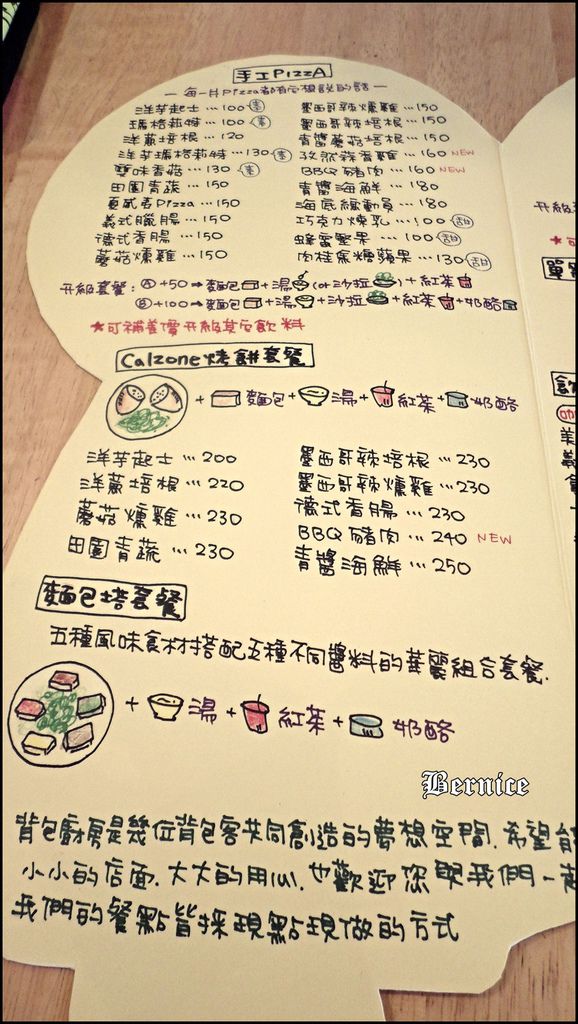 手工PIZZA
— 每一片Pizza都有它想說的話 —
洋芋起士…100 素
瑪格莉特…100 素
洋蔥培根…120
洋芋瑪格莉特…130 素
雙味香菇…130 素
田園青蔬…150
夏威夷Pizza…150
義式臘腸…150
德式香腸…150
蘑菇燻雞…150
墨西哥辣燻雞…150
墨西哥辣培根…150
青醬蘑菇培根…150
孜然蒜香雞…160 NEW
BBQ豬肉…160 NEW
青醬海鮮…180
海底總動員…180
巧克力煉乳…100 甜
蜂蜜堅果…100 甜
肉桂焦糖蘋果…130 甜
升級套餐: A +50→麵包+湯(or沙拉)+紅茶
B +100→麵包+湯+沙拉+紅茶+奶酪
★可補差價升級其它飲料
Calzone烤餅套餐
+麵包+湯+紅茶+奶酪
洋芋起士…200
洋蔥培根…220
蘑菇燻雞…230
田園青蔬…230
墨西哥辣培根…230
墨西哥辣燻雞…230
德式香腸…230
BBQ豬肉…240 NEW
青醬海鮮…250
麵包塔套餐
五種風味食材搭配五種不同醬料的華麗組合套餐.
+湯+紅茶+奶酪
Bernice
背包廚房是幾位背包客共同創造的夢想空間.希望能
小小的店面.大大的用心.也歡迎您與我們一起
我們的餐點皆採現點現做的方式